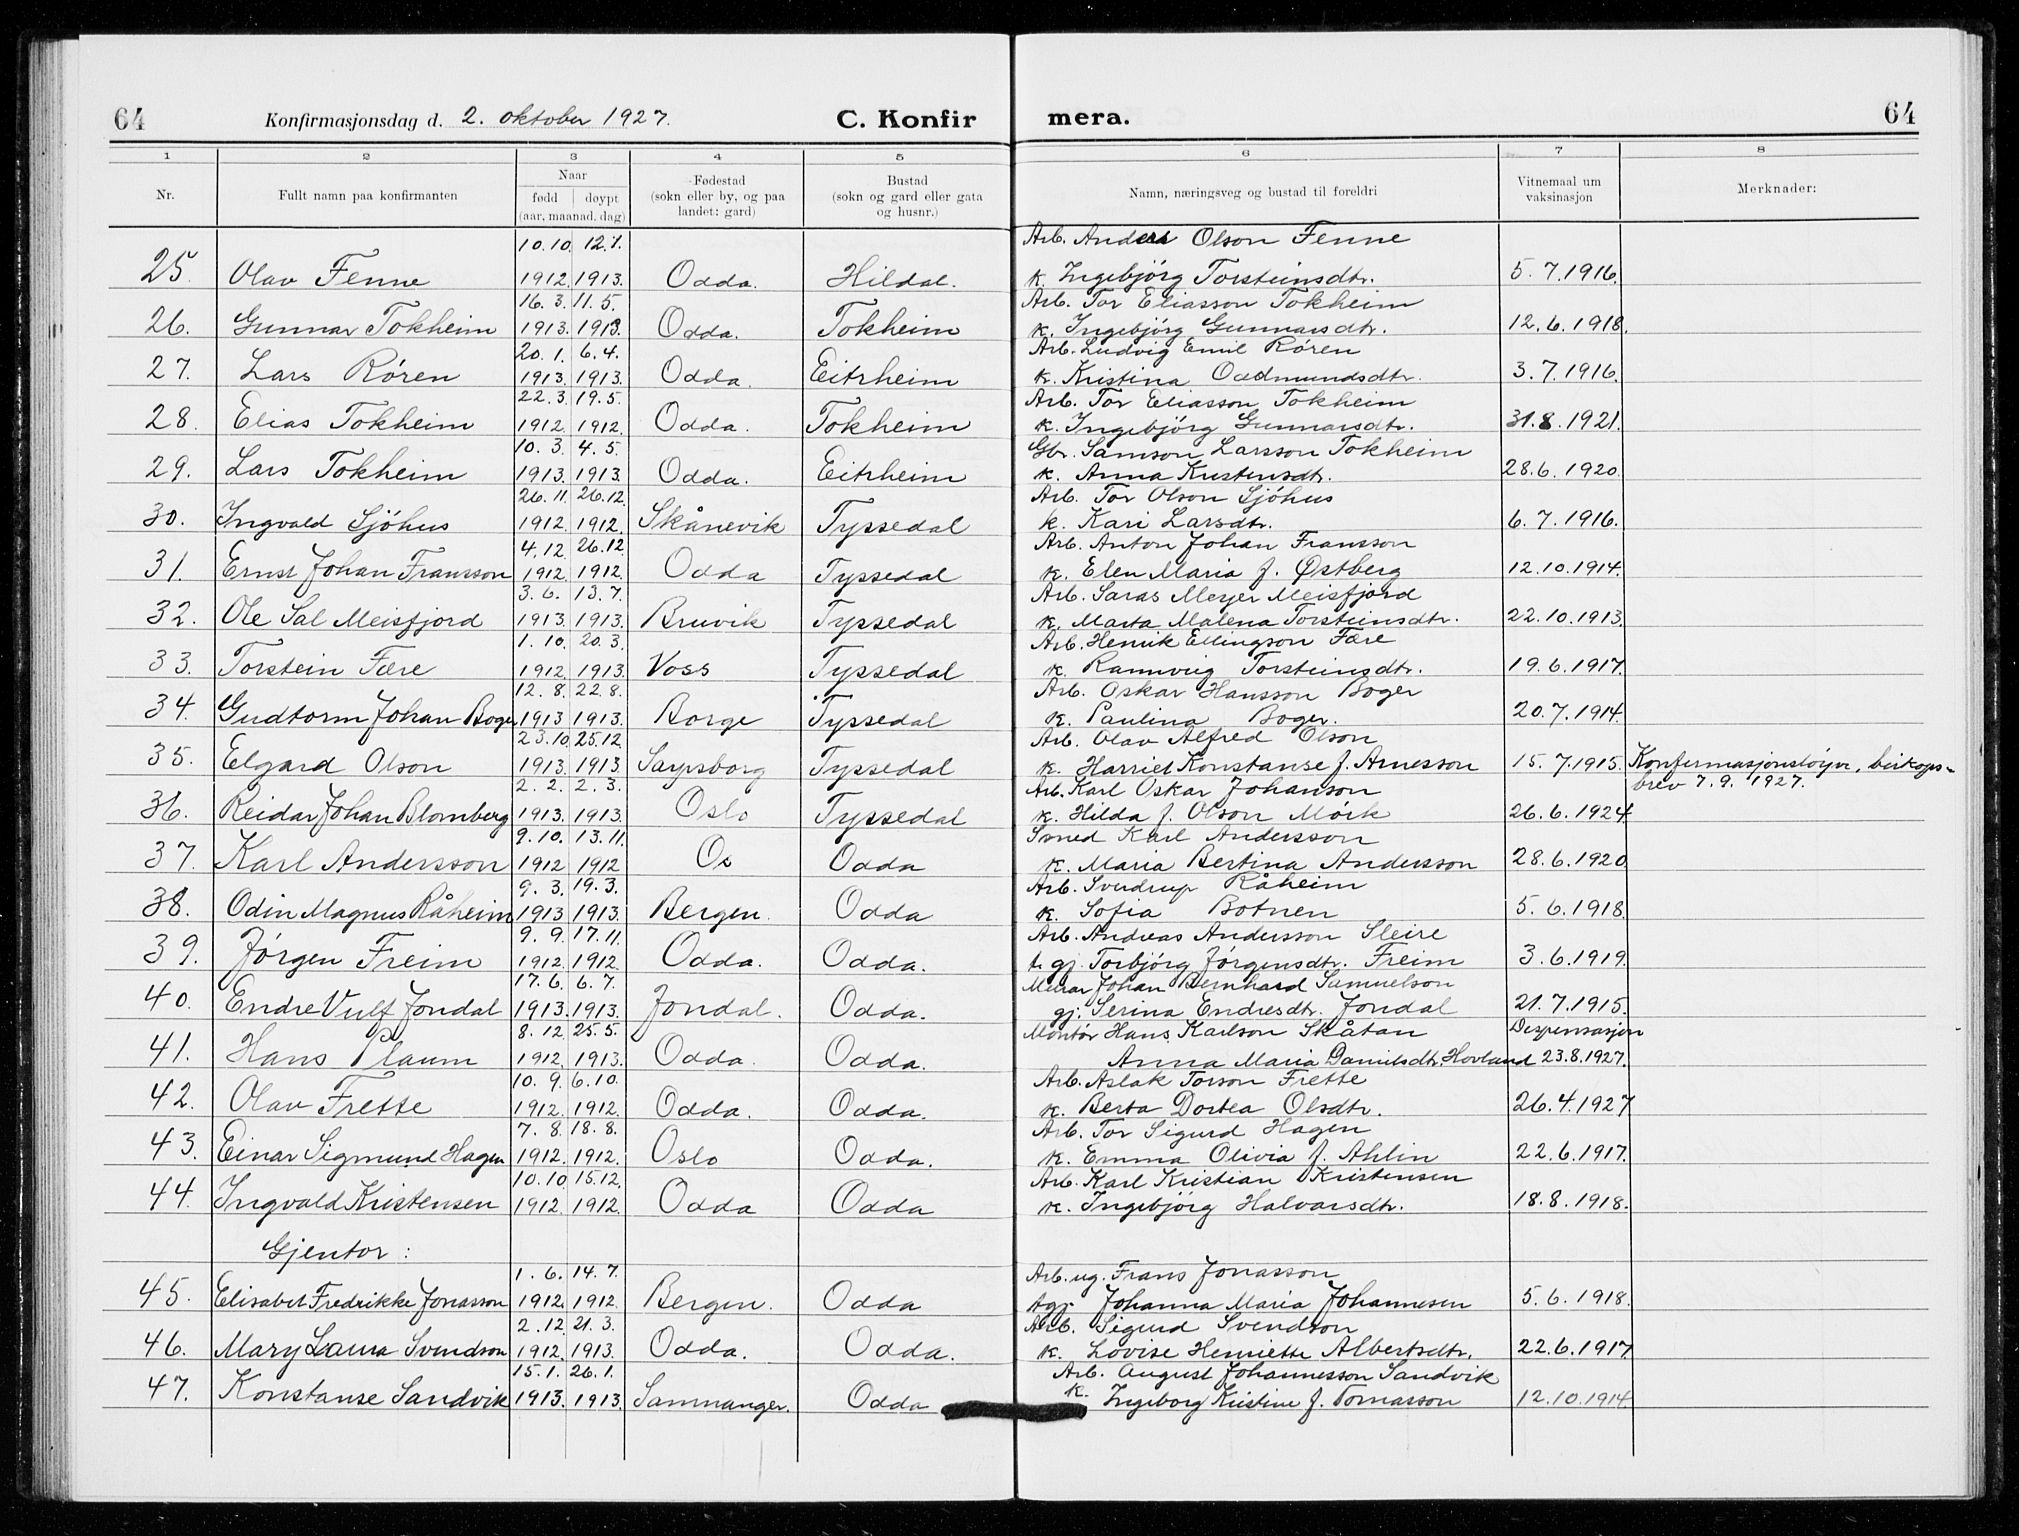 64 Konfirmasjonsdag d. 2. oktober 1927. C. Konfir mera. 64
1 2 3 4 5 6 7 8
Nr. Fullt namn paa konfirmanten Naar fødd døypt (aar, maanad, dag) Fødestad (sokn eller by, og paa landet: gard) Bustad (sokn og gard eller gata og husnr.) Namn, næringsveg og bustad til foreldri Vitnemaal um vaksinasjon Merknader:
10.10. 12.1. Arb. Anders Olson Fenne
25. Olav Fenne 1912. 1913. Odda. Hildal. k. Ingebjörg Torsteinsdtr. 5.7.1916.
16.3. 11.5. Arb. Tor Eliasson Tokheim
26. Gunnar Tokheim 1913. 1913. Odda. Tokheim k. Ingebjörg Gunnarsdtr. 12.6.1918.
20.1. 6.4. Arb. Ludvig Emil Rören
27. Lars Rören 1913. 1913. Odda. Eitrheim k. Kristina Oddmundsdtr. 3.7.1916.
22.3. 19.5. Arb. Tor Eliasson Tokheim
28. Elias Tokheim 1912. 1912. Odda. Tokheim k. Ingebjörg Gunnarsdtr. 31.8.1921.
10.3. 4.5. Gbr. Samson Larsson Tokheim
29. Lars Tokheim 1913. 1913. Odda. Eitrheim k. Anna Kristensdtr. 28.6.1920.
26.11. 26.12. Arb. Tor Olson Sjöhus
30. Ingvald Sjöhus 1912. 1912. Skånevik Tyssedal k. Kari Larsdtr. 6.7.1916.
4.12. 26.12. Arb. Anton Johan Fransson
31. Ernst Johan Fransson 1912. 1912. Odda Tyssedal k. Elen Maria f. Østberg 12.10.1914.
3.6. 13.7. Arb. Saras Meyer Meisfjord
32. Ole Sal Meisfjord 1913. 1913. Bruvik Tyssedal k. Marta Malena Torsteinsdtr. 22.10.1913.
1.10. 20.3. Arb. Henrik Ellingson Fære
33. Torstein Fære 1912. 1913. Voss Tyssedal k. Rannveig Torsteinsdtr. 19.6.1917.
12.8. 22.8. Arb. Oskar Hansson Boger
34. Gudtorm Johan Boger 1913 1913. Borge Tyssedal k. Paulina Boger. 20.7.1914.
23.10. 25.12. Arb. Olav Alfred Olson
35. Elgard Olson 1913. 1913. Sarpsborg Tyssedal k. Harriet Konstanse f. Arnesson 15.7.1915. Konfirmasjonsløyve, biskops-
2.2. 2.3. Arb. Karl Oskar Johanson brev 7.9.1927.
36. Reidar Johan Blomberg 1913. 1913. Oslo Tyssedal k. Hilda f. Olson Mörk 26.6.1924
9.10. 13.11. Smed Karl Andersson
37. Karl Andersson 1912 1912 Os Odda k. Maria Bertina Andersson 28.6.1920
9.3. 19.3. Arb. Sverdrup Råheim
38. Odin Magnus Råheim 1913 1913. Bergen. Odda k. Sofia Botnen 5.6.1918.
9.9. 17.11. Arb. Andreas Andersson Sleire
39. Jörgen Freim 1912. 1912. Odda. Odda. t. gj. Torbjörg Jörgensdtr. Freim 3.6.1919.
17.6. 6.7. Murar Johan Bernhard Samuelson
40. Endre Vulf Jondal 1913. 1913. Jondal. Odda. gj. Serina Endresdtr. Jondal 21.7.1915.
8.12. 25.5. Montør Hans Karlson Skåtan Dispensasjon
41. Hans Plaum 1912. 1913. Odda. Odda. Anna Maria Danielsdtr. Hovland 23.8.1927.
10.9. 6.10. Arb. Aslak Torson Frette
42. Olav Frette 1912. 1912. Odda. Odda. k. Berta Dortea Olsdtr. 26.4.1927
7.8. 18.8. Arb. Tor Sigurd Hagen
43. Einar Sigmund Hagen 1912. 1912. Oslo Odda. k. Emma Olivia f. Ahlin 22.6.1917.
10.10. 15.12. Arb. Karl Kristian Kristensen
44. Ingvald Kristensen 1912. 1912. Odda Odda k. Ingebjörg Halvarsdtr. 18.8.1918.
Gjentor:
1.6. 14.7. Arb. ug. Frans Jonasson
45. Elisabet Fredrikke Jonasson 1912. 1912. Bergen. Odda t.gj. Johanna Maria Johannesen 5.6.1918.
2.12. 21.3. Arb. Sigurd Svendson
46. Mary Laura Svendson 1912. 1913. Odda. Odda. k. Lovise Henriette Albertsdtr. 22.6.1917
15.1. 26.1. Arb. August Johannesson Sandvik
47. Konstanse Sandvik 1913. 1913. Samnanger. Odda k. Ingeborg Kristine f. Tomasson 12.10.1914